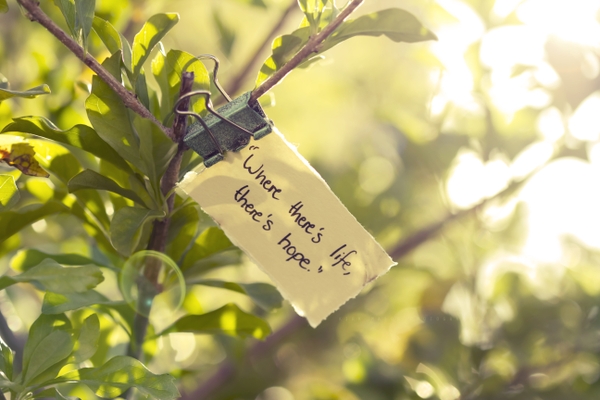 "Where there's life,
there's hope."